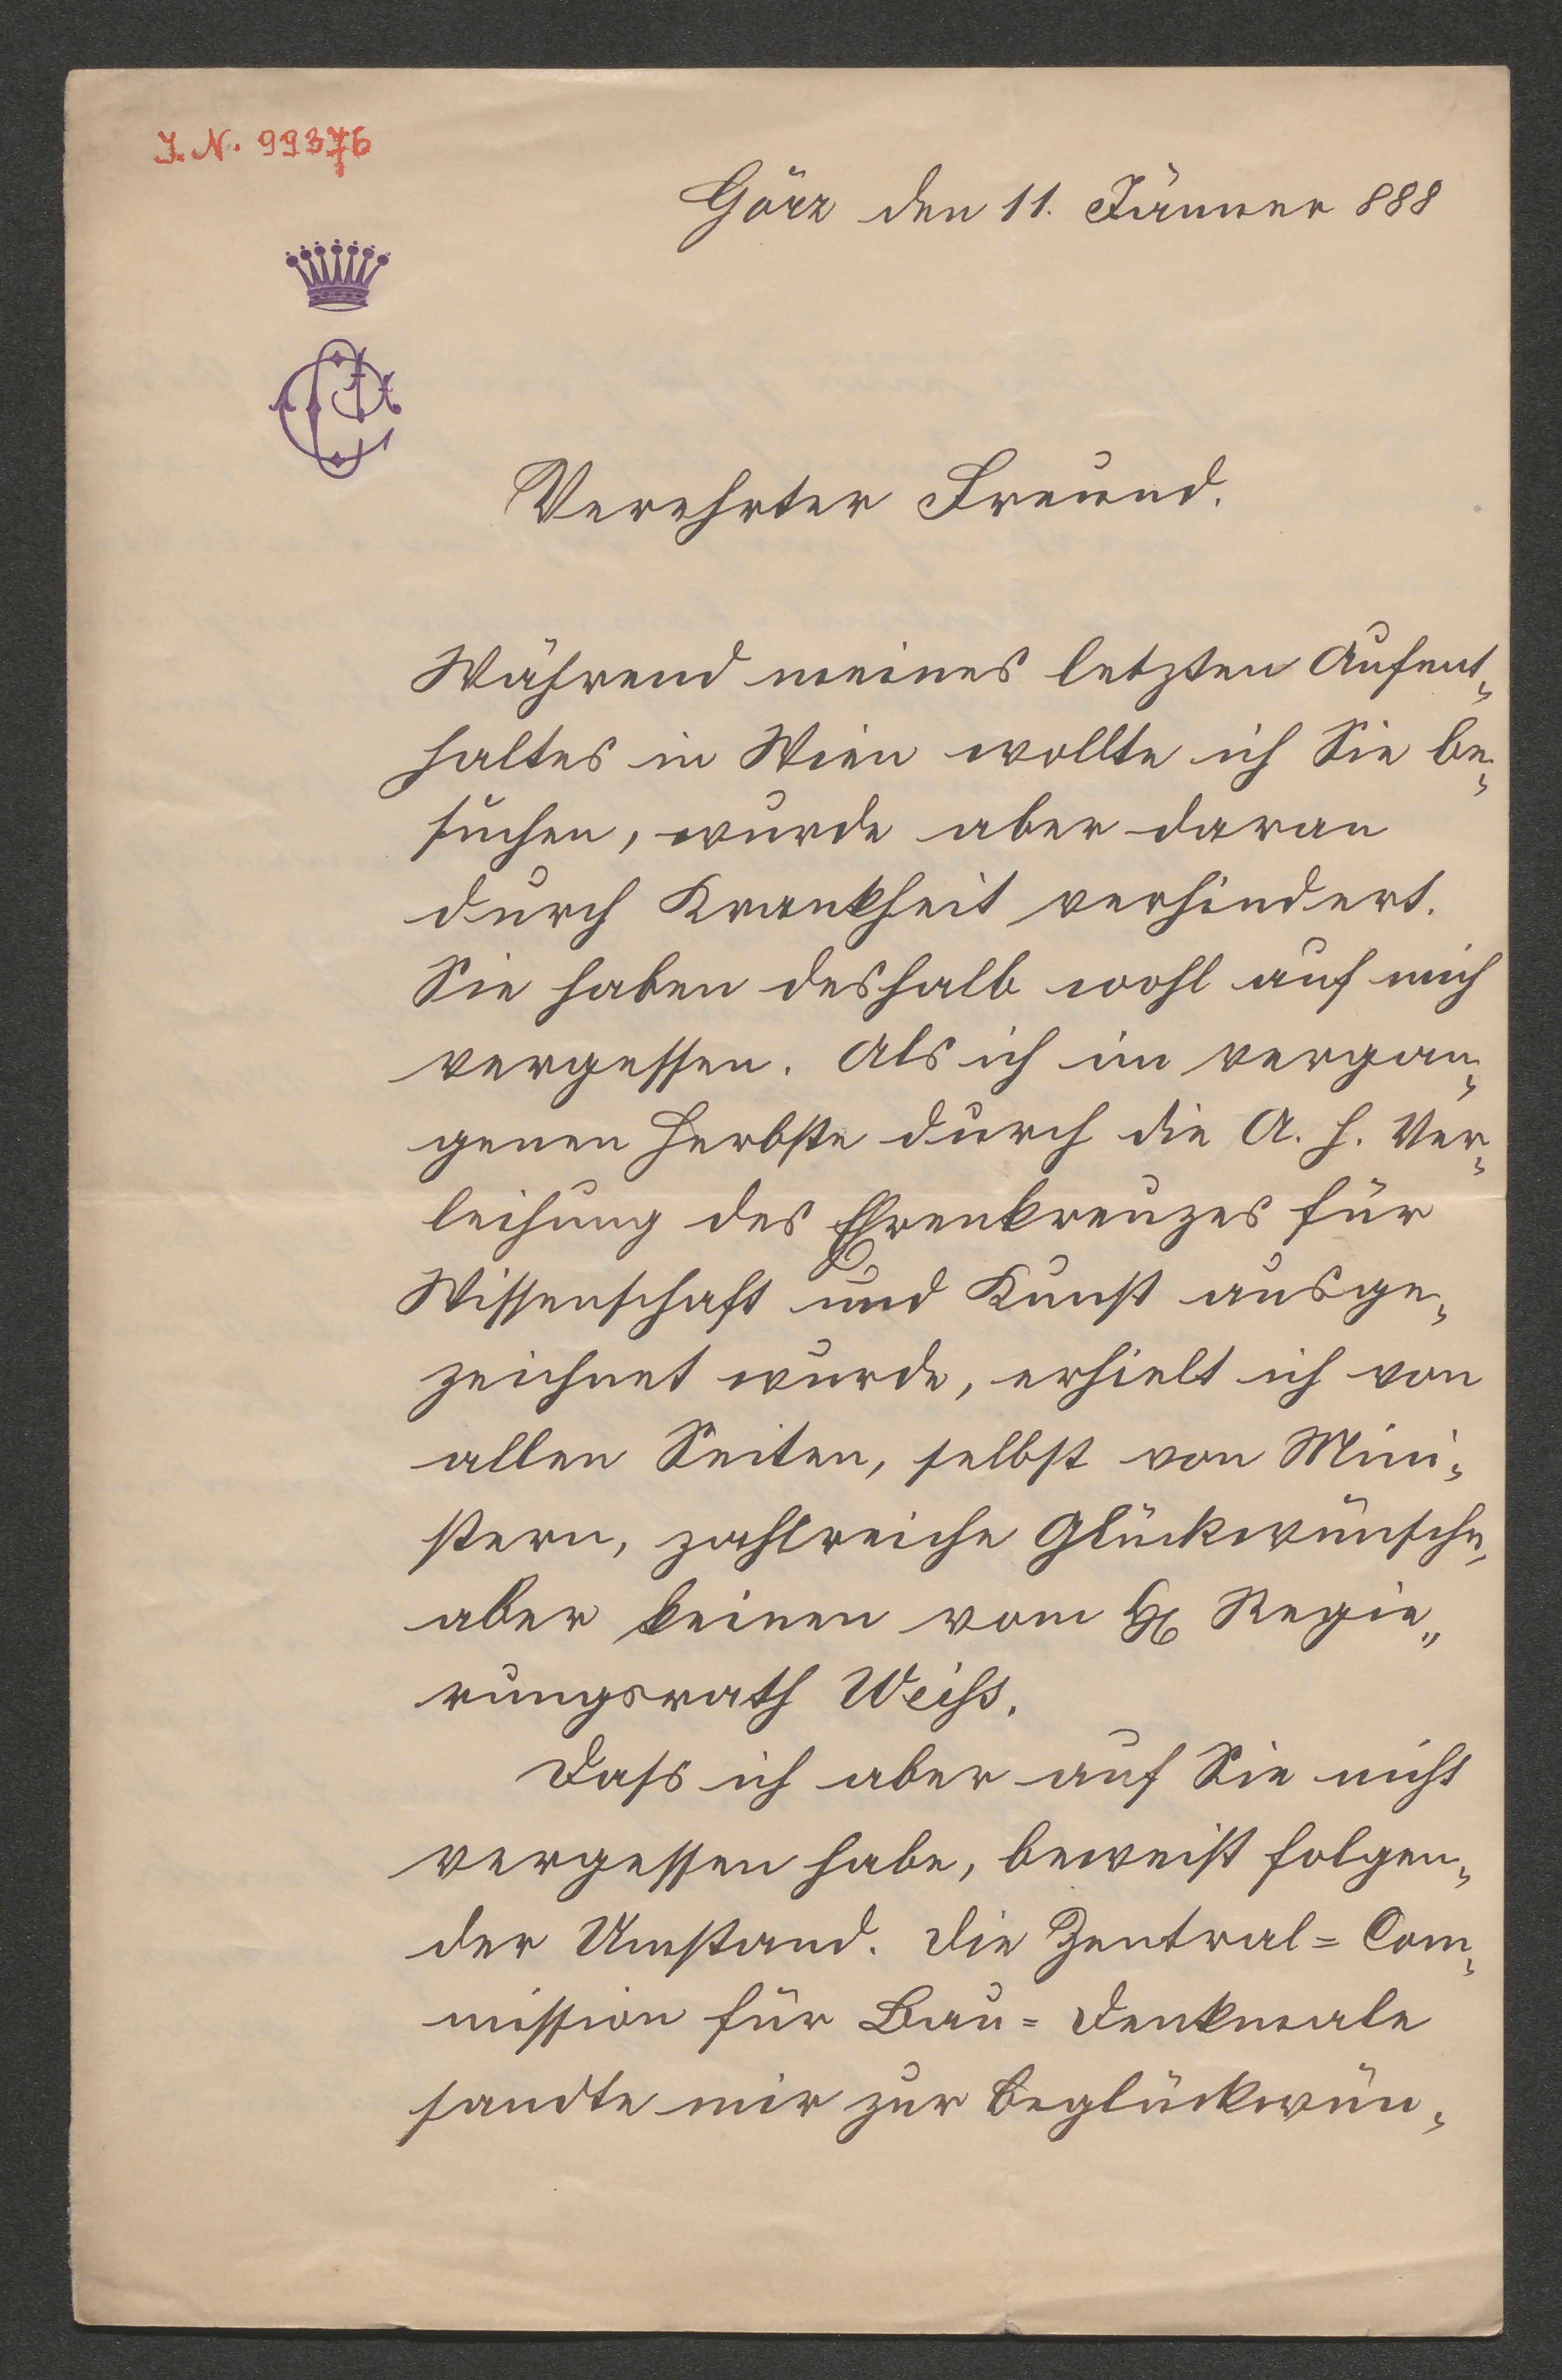 J. N. 99376
Görz den 11. Jänner 888
Verehrter Freund.
Während meines letzten Aufent-
haltes in Wien wollte ich Sie be-
suchen, wurde aber daran
durch Krankheit verhindert.
Sie haben deshalb wohl auf mich
vergessen. Als ich im vergan-
genen Herbste durch die A. h. Ver-
leihung des Ehrenkreuzes für
Wissenschaft und Kunst ausge-
zeichnet wurde, erhielt ich von
allen Seiten, selbst von Mini-
stern, zahlreiche Glückwünsche,
aber keinen vom H Regie-
rungsrath Weiss.
Dass ich aber auf Sie nicht
vergessen habe, beweist folgen-
der Umstand. Die Zentral=Com-
mission für Bau=Denkmale
sandte mir zur Beglückwün-